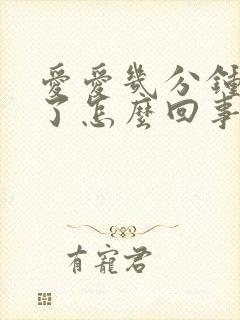 愛愛幾分鐘
了怎麼回事
有寵君